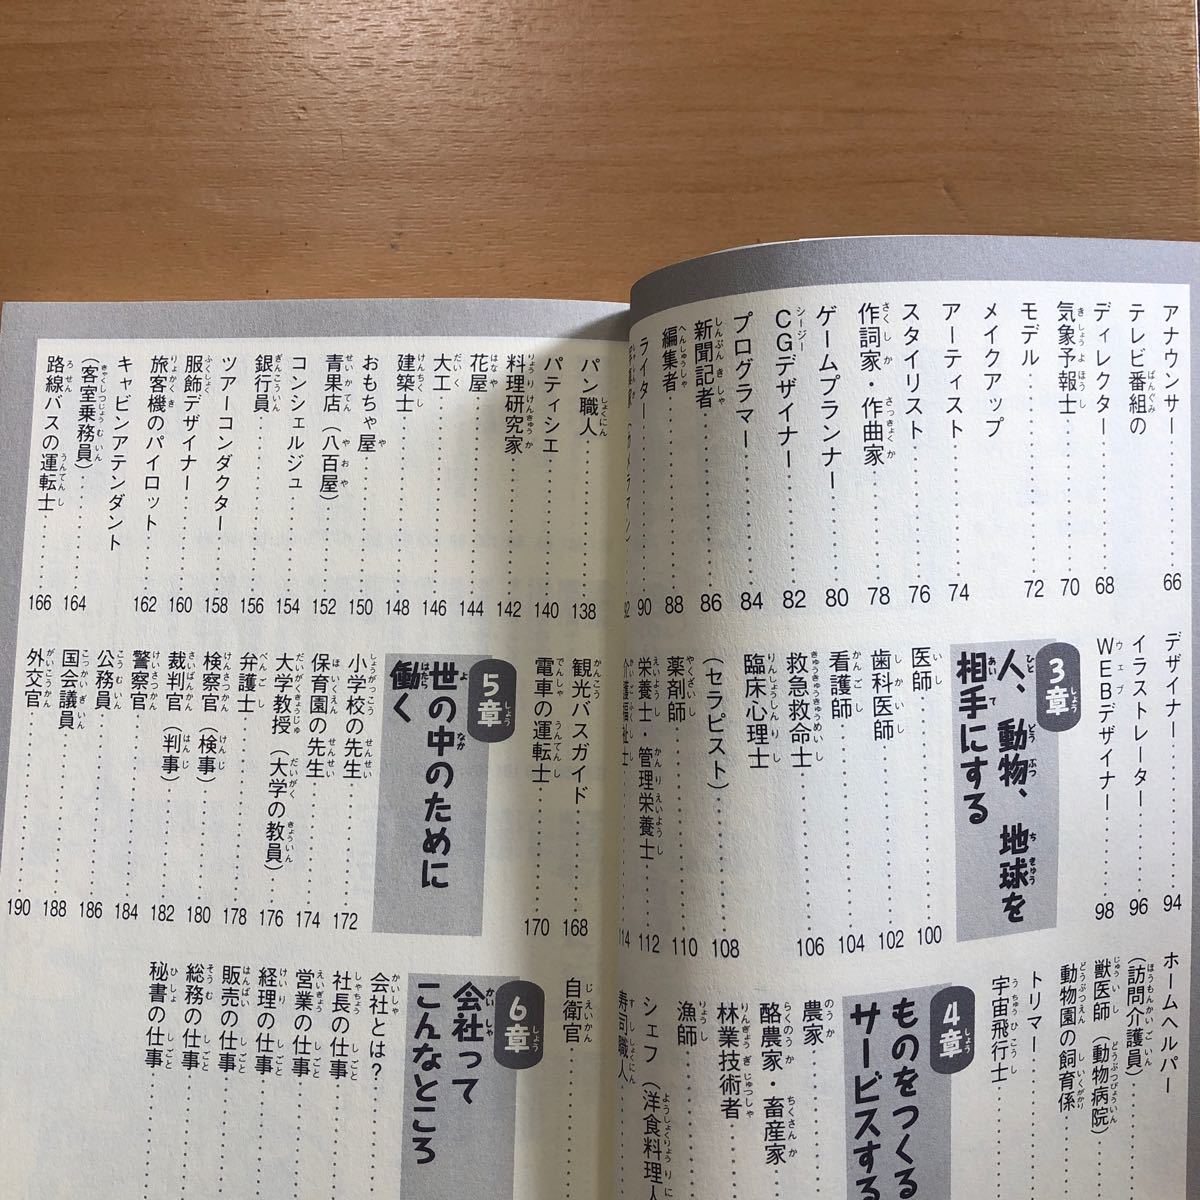 アナウンサー 66
テレビ番組の
ディレクター 68
気象予報士 70
モデル 72
メイクアップ
アーティスト 74
スタイリスト 76
作詞家・作曲家 78
ゲームプランナー 80
CGデザイナー 82
プログラマー 84
新聞記者 86
編集者 88
ライター 90
デザイナー 94
イラストレーター 96
WEBデザイナー 98
3章
人、動物、地球を
相手にする
医師 100
歯科医師 102
看護師 104
救急救命士 106
臨床心理士
(セラピスト) 108
薬剤師 110
栄養士・管理栄養士 112
介護福祉士 114
ホームヘルパー
(訪問介護員)
獣医師(動物病院)
動物園の飼育係
トリマー
宇宙飛行士
4章
ものをつくる
サービスする
農家
酪農家・畜産家
林業技術者
漁師
シェフ(洋食料理人
寿司職人
パン職人 138
パティシエ 140
料理研究家 142
花屋 144
大工 146
建築士 148
おもちゃ屋 150
青果店(八百屋) 152
コンシェルジュ 154
銀行員 156
ツアーコンダクター 158
服飾デザイナー 160
旅客機のパイロット 162
キャビンアテンダント
(客室乗務員) 164
路線バスの運転士 166
観光バスガイド 168
電車の運転士 170
5章
世の中のために
働く
小学校の先生 172
保育園の先生 174
大学教授(大学の教員) 176
弁護士 178
検察官(検事) 180
裁判官(判事) 182
警察官 184
公務員 186
国会議員 188
外交官 190
自衛官
6章
会社って
こんなところ
会社とは?
社長の仕事
営業の仕事
経理の仕事
販売の仕事
総務の仕事
秘書の仕事